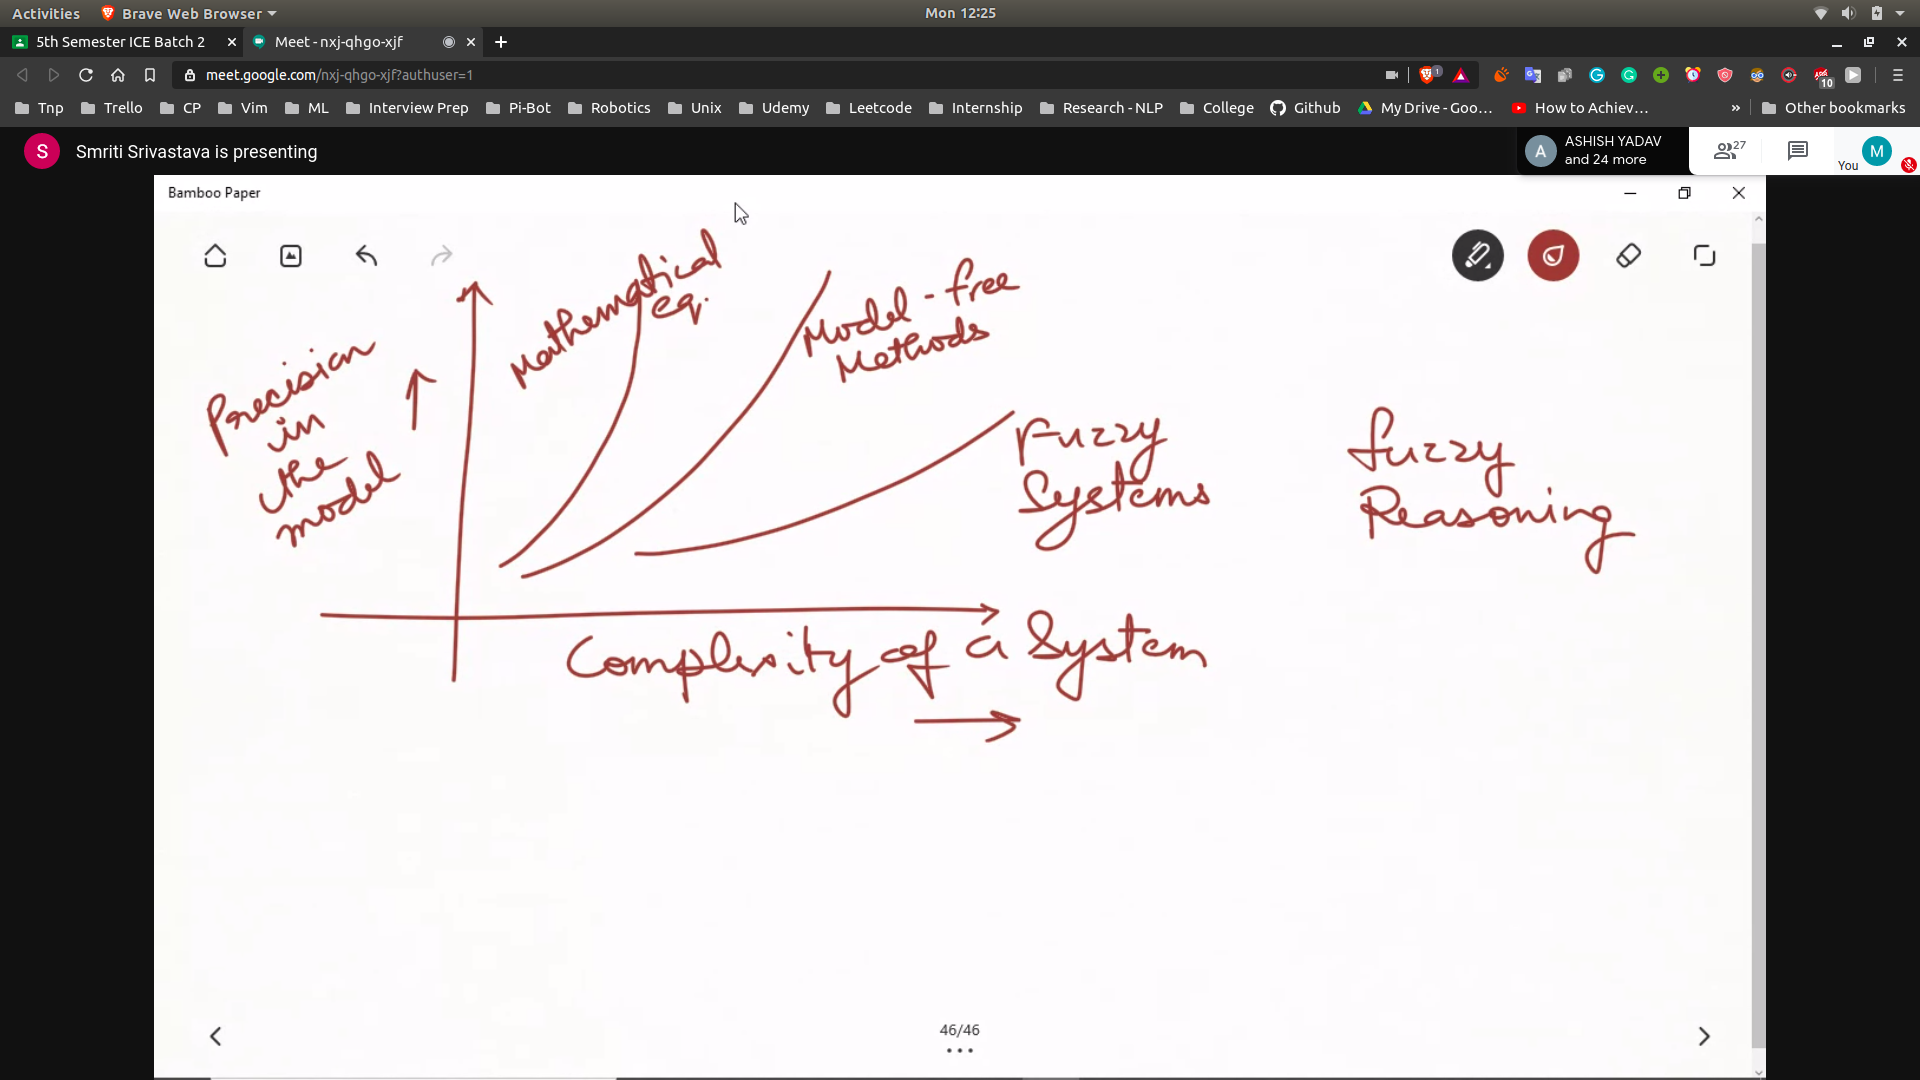 Activities
Brave Web Browser
Mon 12:25
5th Semester ICE Batch 2
Meet - nxj-qhgo-xjf
meet.google.com/nxj-qhgo-xjf?authuser=1
1
10
Tnp
Trello
CP
Vim
ML
Interview Prep
Pi-Bot
Robotics
Unix
Udemy
Leetcode
Internship
Research - NLP
College
Github
My Drive - Goo...
How to Achiev...
»
Other bookmarks
S
Smriti Srivastava is presenting
A
ASHISH YADAV
and 24 more
27
You
M
Bamboo Paper
Mathematical
eq.
Model-free
Methods
Precision
in
the
model
Fuzzy
Systems
fuzzy
Reasoning
Complexity of a System
46/46